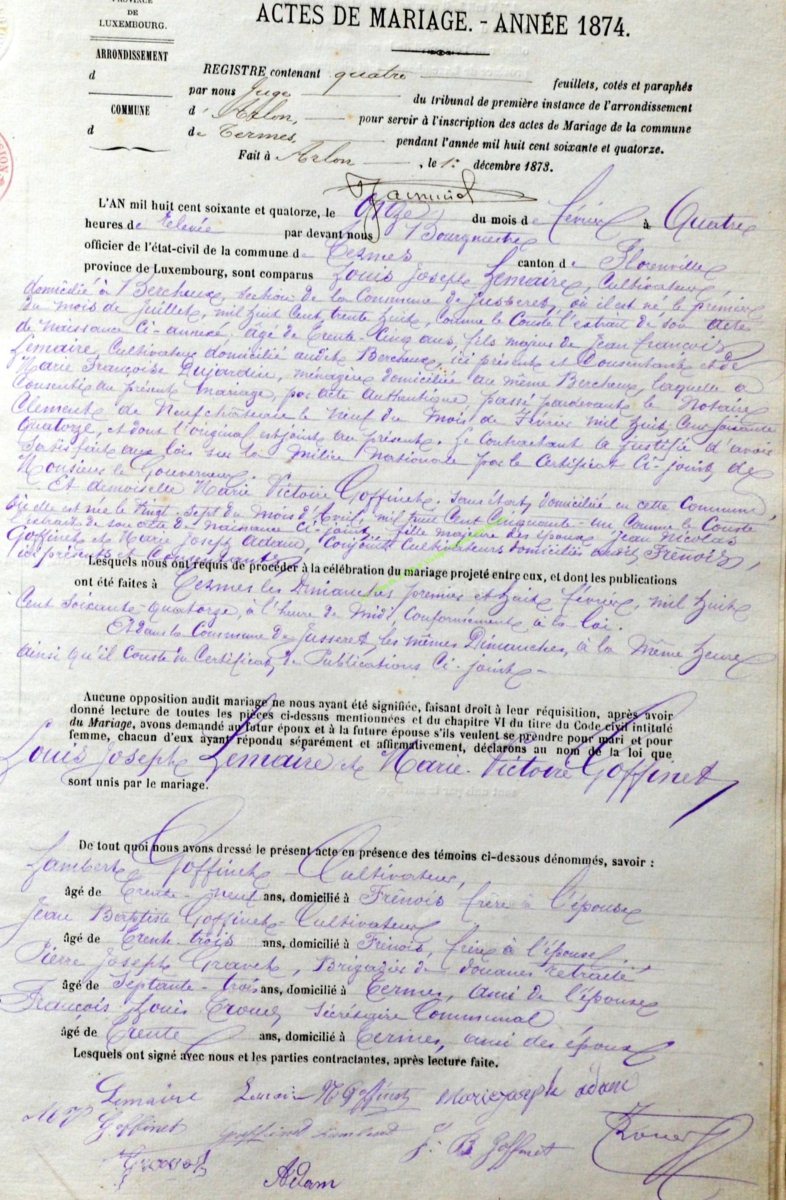 PROVINCE
DE
LUXEMBOURG.
ARRONDISSEMENT
d
COMMUNE
d
ACTES DE MARIAGE. - ANNÉE 1874.
REGISTRE contenant quatre feuillets, cotés et paraphés
par nous Juge du tribunal de première instance de l'arrondissement
d'Arlon, pour servir à l'inscription des actes de Mariage de la commune
de Termes, pendant l'année mil huit cent soixante et quatorze.
Fait à Arlon, le 1r décembre 1873.
L'AN mil huit cent soixante et quatorze, le onze du mois de février à Quatre
heures de relevée par devant nous Bourgmestre
officier de l'état-civil de la commune de Termes canton de Florenville
province de Luxembourg, sont comparus Louis Joseph Lemaire, Cultivateur
domicilié à Bercheux, section de la Commune de Jusseret, où il est né le premier
du mois de Juillet, mil huit Cent trente huit, comme le Conste l'extrait de son acte
de naissance Ci-annexé âgé de Trente-Cinq ans, fils majeur de Jean François
Lemaire, Cultivateur domicilié audit Bercheux, ici présent et Consentant et de
Marie Françoise Dujardin, ménagère domiciliée au même Bercheux, laquelle a
Consenti au présent mariage, par acte authentique passé pardevant le Notaire
Clement de Neufchâteau le neuf du Mois de Février mil huit Cent soixante
Quatorze, et dont l'original est joint au présent. Le Contractant a justifié d'avoir
Satisfait aux lois sur la Milice Nationale par le Certificat Ci-joint de
Monsieur le Gouverneur.
Et demoiselle Marie Victoire Goffinet, Sans état, domiciliée en cette Commune,
où elle est née le Vingt-Sept du Mois d'Avril, mil huit Cent Cinquante-un Comme le Conste
l'extrait de son acte de naissance Ci-joint, fille majeure des époux Jean Nicolas
Goffinet et Marie Joseph Adam, Conjoints Cultivateurs domiciliés audit Frenois,
ici présents et Consentants
Lesquels nous ont requis de procéder à la célébration du mariage projeté entre eux, et dont les publications
ont été faites à Termes les Dimanches premier et huit Février, mil huit
Cent soixante Quatorze, à l'heure de Midi, Conformément à la loi.
Et dans la Commune de Jusseret, les mêmes Dimanches, à la Même heure
ainsi qu'il Conste du Certificat de Publications Ci-joint -
Aucune opposition audit mariage ne nous ayant été signifiée, faisant droit à leur réquisition, après avoir
donné lecture de toutes les pièces ci-dessus mentionnées et du chapitre VI du titre du Code civil intitulé
du Mariage, avons demandé au futur époux et à la future épouse s'ils veulent se prendre pour mari et pour
femme, chacun d'eux ayant répondu séparément et affirmativement, déclarons au nom de la loi que
Louis Joseph Lemaire et Marie-Victoire Goffinet
sont unis par le mariage.
De tout quoi nous avons dressé le présent acte en présence des témoins ci-dessous dénommés, savoir :
Lambert Goffinet - Cultivateur,
âgé de Trente-neuf ans, domicilié à Frénois frère à l'épouse
Jean Baptiste Goffinet - Cultivateur
âgé de Trente-trois ans, domicilié à Frénois, frère à l'épouse
Pierre Joseph Gravet, Brigadier de douanes retraité
âgé de Septante-trois ans, domicilié à Termes, ami de l'épouse
François Louis Troué, Secrétaire Communal
âgé de Trente ans, domicilié à Termes, ami des époux
Lesquels ont signé avec nous et les parties contractantes, après lecture faite.
Lemaire Lemaire N Goffinet Marie joseph adam
M V Goffinet goffinet Lambert J. B Goffinet
Gravet
Adam